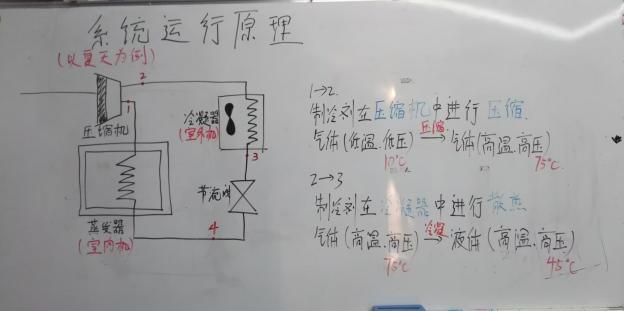 系统运行原理
(以夏天为例)
2
1
压缩机
冷凝器
(室外机)
3
节流阀
蒸发器
(室内机)
4
1→2.
制冷剂在压缩机中进行压缩.
压缩
气体(低温.低压)→气体(高温.高压)
10℃ 75℃
2→3
制冷剂在冷凝器中进行散热
冷凝
气体(高温.高压)→液体(高温.高压)
75℃ 45℃